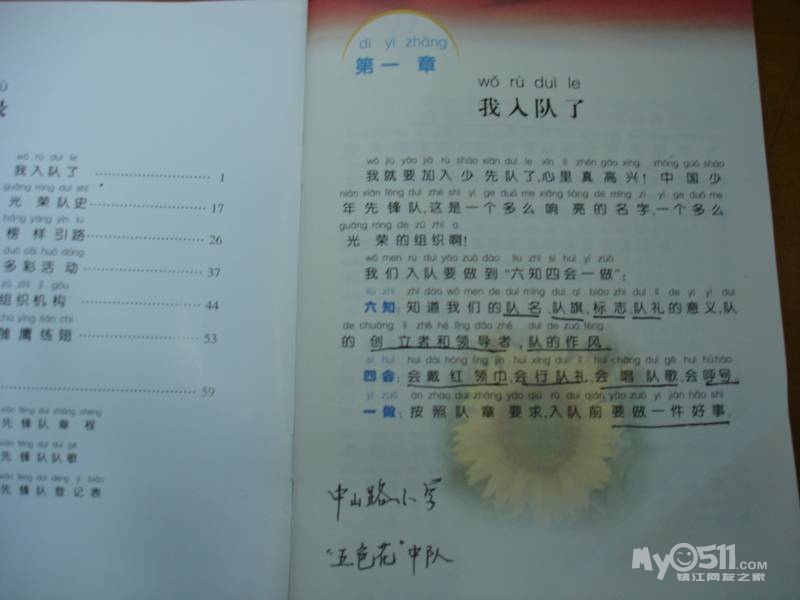 录
wǒ rù duì le
我入队了 1
guāng róng duì shǐ
光荣队史 17
bǎng yàng yǐn lù
榜样引路 26
duō cǎi huó dòng
多彩活动 37
zǔ zhī jī gòu
组织机构 44
chú yīng liàn chì
雏鹰练翅 53
59
先锋队章程
先锋队队歌
先锋队登记表
dì yī zhāng
第一章
wǒ rù duì le
我入队了
wǒ jiù yào jiā rù shào xiān duì le xīn lǐ zhēn gāo xìng zhōng guó shào
我就要加入少先队了,心里真高兴!中国少
nián xiān fēng duì zhè shì yí ge duō me xiǎng liàng de míng zì yí ge duō me
年先锋队,这是一个多么响亮的名字,一个多么
guāng róng de zǔ zhī a
光荣的组织啊!
wǒ men rù duì yào zuò dào liù zhī sì huì yí zuò
我们入队要做到“六知四会一做”:
liù zhī zhī dào wǒ men de duì míng duì qí biāo zhì duì lǐ de yì yì duì
六知:知道我们的队名、队旗、标志、队礼的意义,队
de chuàng lì zhě hé lǐng dǎo zhě duì de zuò fēng
的创立者和领导者,队的作风。
sì huì huì dài hóng lǐng jīn huì xíng duì lǐ huì chàng duì gē huì hū hào
四会:会戴红领巾,会行队礼,会唱队歌,会呼号。
yí zuò àn zhào duì zhāng yāo qiú rù duì qián yào zuò yí jiàn hǎo shì
一做:按照队章要求,入队前要做一件好事。
中山路小学
“五色花”中队
My0511.com
镇江网友之家